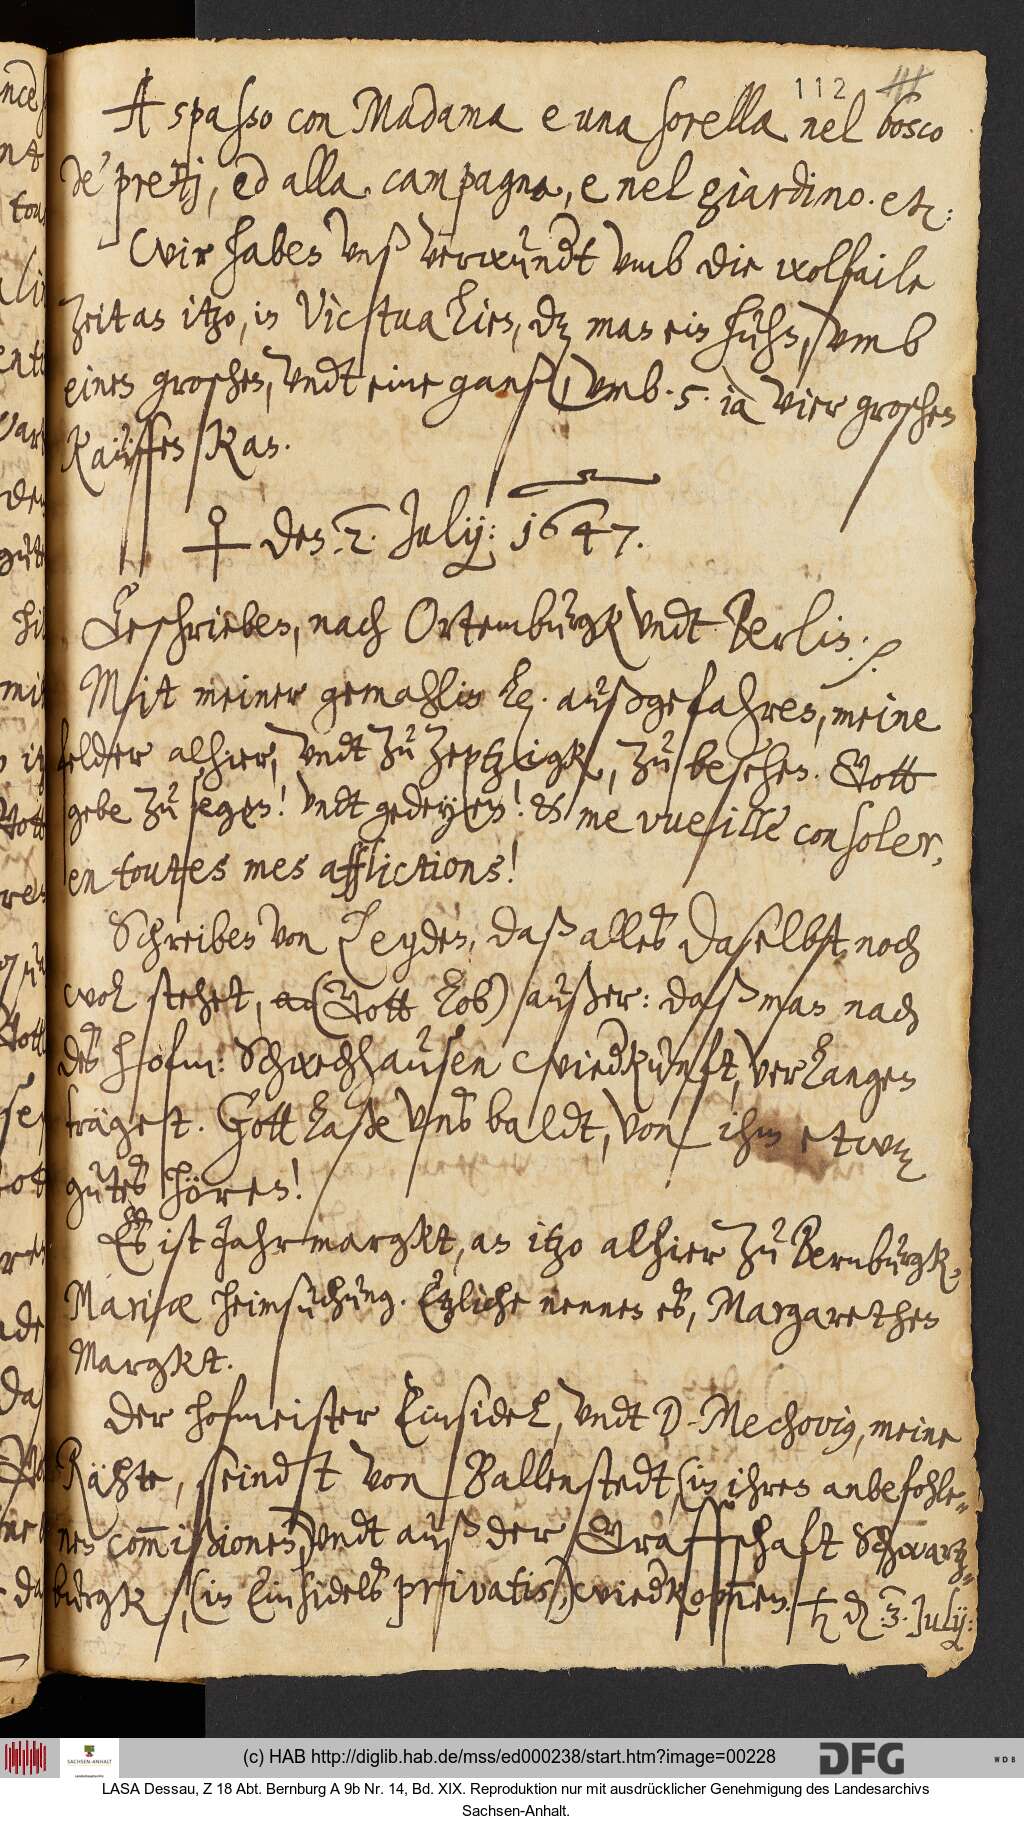 112
A spasso con Madama e una sorella nel bosco
de' pretij, ed alla campagna, e nel giardino. etc:
Wir haben vnß verwundt vmb die wolfaile
Zeit an itzo, in Victualien, dz man ein huhn, vmb
einen groschen, vndt eine ganß, vmb .5. ia vier groschen
Kauffen kan.
♀ den .2. July: 1647.
Geschrieben, nach Ortemburgk vndt Berlin. /.
Mit meiner gemahlin Ld. außgefahren, meine
felder alhier, vndt zu Zeptzigk, zu besehen. Gott
gebe zu segen! vndt gedeyen! & me vueille consoler,
en toutes mes afflictions!
Schreiben von Leyden, daß alles daselbst noch
wol stehet, (Gott lob) außer: daß man nach
des hofm: Schwechhausen wiedkunft, verlangen
träget. Gott laße vns baldt, von ihm etwz
gutes hören!
Es ist Jahrmargkt, an itzo alhier zu Bernburgk,
Mariæ heimsuchung. Ezliche nennen es, Margarethen
Margkt.
Der hofmeister Einsidel, vndt D. Mechovius, meine
Rähte, seindt von Ballenstedt, (in ihren anbefohle-
nen com̄ißionen) vndt auß der Graffschaft Schwartz-
burgk, (in Einsidels privatis) wiedkom̄en. ♄ den .3. July:
(c) HAB http://diglib.hab.de/mss/ed000238/start.htm?image=00228
SACHSEN-ANHALT
DFG
WDB
LASA Dessau, Z 18 Abt. Bernburg A 9b Nr. 14, Bd. XIX. Reproduktion nur mit ausdrücklicher Genehmigung des Landesarchivs
Sachsen-Anhalt.